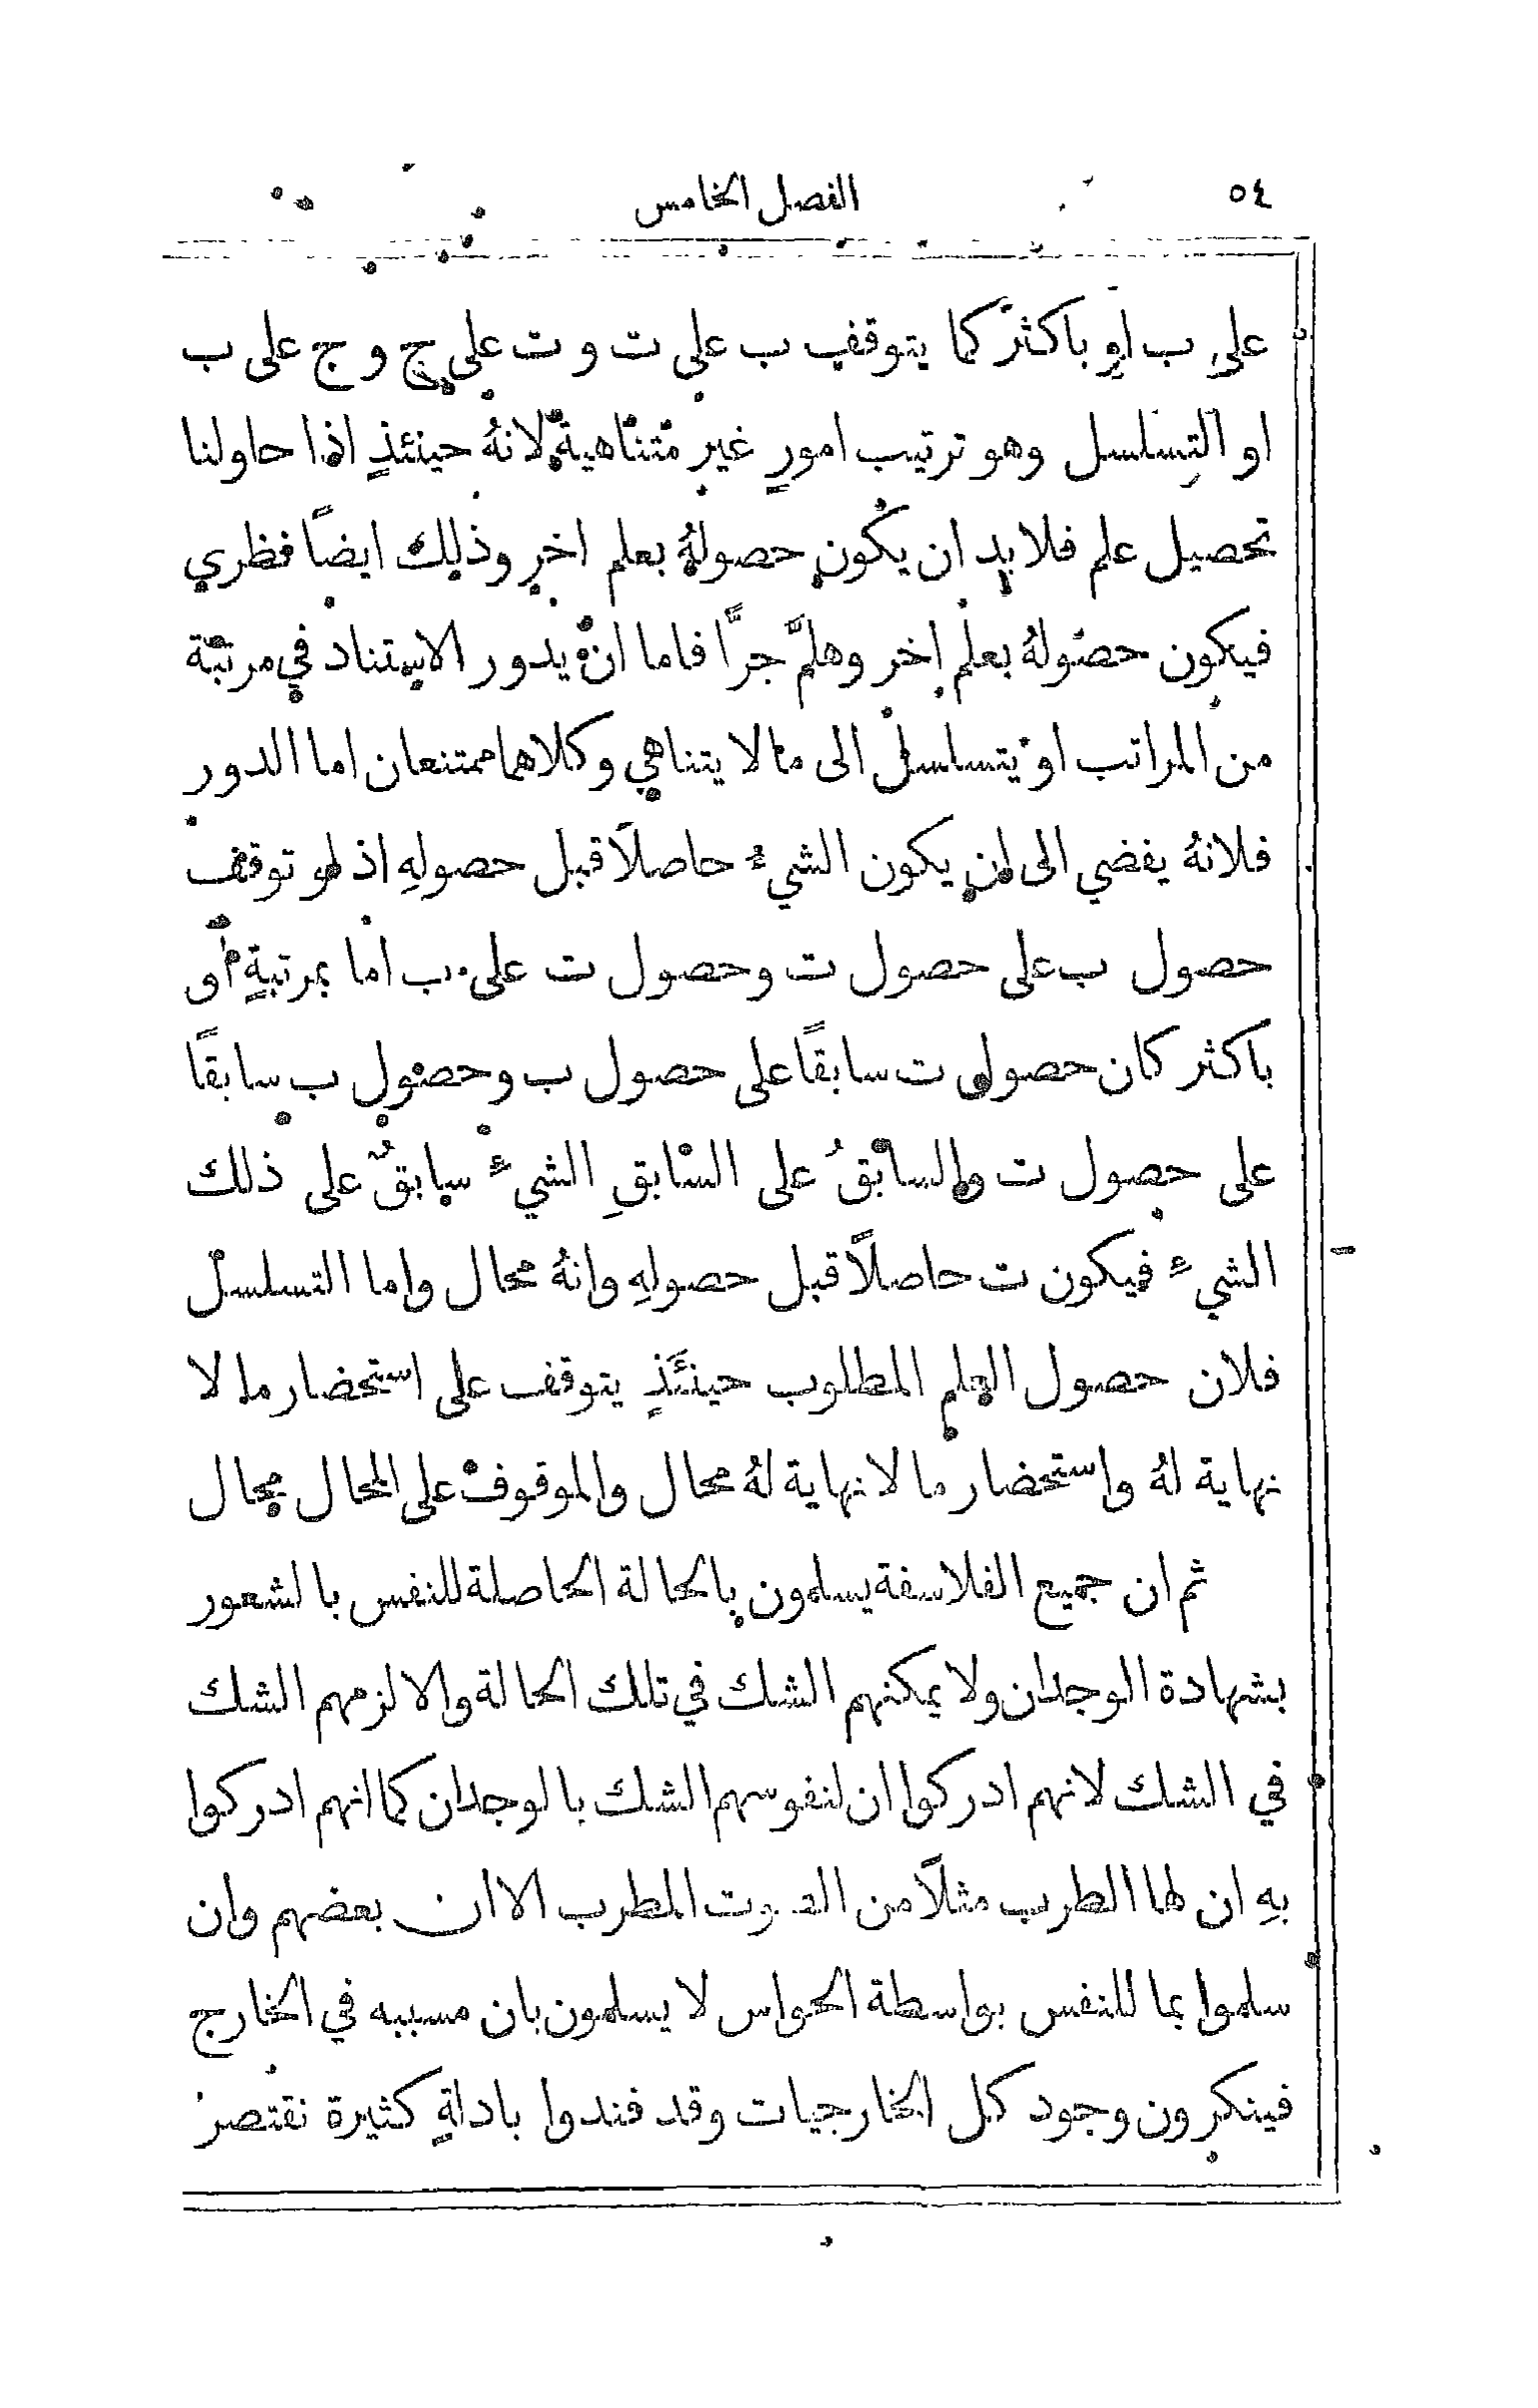 ٥٤
الفصل الخامس
على ب او باكثر كما يتوقف ب على ت و ت على ج و ج على ب
او التسلسل وهو ترتيب امورٍ غير متناهية لانهُ حينئذٍ اذا حاولنا
تحصيل علم فلا بد ان يكون حصولهُ بعلم اخر وذلك ايضاً نظري
فيكون حصولهُ بعلم اخر وهلمَّ جرًّا فاما ان يدور الاستناد في مرتبة
من المراتب او يتسلسل الى ما لا يتناهى وكلاهما ممتنعان اما الدور
فلانهُ يفضي الى ان يكون الشيءُ حاصلاً قبل حصولهِ اذ لو توقف
حصول ب على حصول ت وحصول ت على ب اما بمرتبةٍ او
باكثر كان حصول ت سابقاً على حصول ب وحصول ب سابقاً
على حصول ت والسابقُ على السابقِ الشيءِ سابقٌ على ذلك
الشيءِ فيكون ت حاصلاً قبل حصولهِ وانهُ محال واما التسلسل
فلان حصول العلم المطلوب حينئذٍ يتوقف على استحضار ما لا
نهاية لهُ واستحضار ما لا نهاية لهُ محال والموقوف على المحال محال
ثم ان جميع الفلاسفة يسلمون بالحالة الحاصلة للنفس بالشعور
بشهادة الوجدان ولا يمكنهم الشك في تلك الحالة والا لزمهم الشك
في الشك لانهم ادركوا ان لنفوسهم الشك بالوجدان كما انهم ادركوا
بهِ ان لها الطرب مثلاً من الصوت المطرب الا ان بعضهم وان
سلموا بما للنفس بواسطة الحواس لا يسلمون بان مسببه في الخارج
فينكرون وجود كل الخارجيات وقد فندوا بادلةٍ كثيرة نقتصر